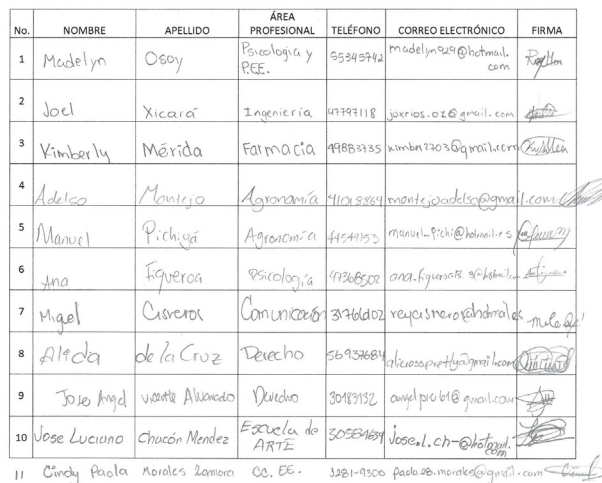 No. NOMBRE APELLIDO ÁREA PROFESIONAL TELÉFONO CORREO ELECTRÓNICO FIRMA
1 Madelyn Osoy Psicología y P.EE. 55345742 madelyn929@hotmail.com
2 Joel Xicará Ingeniería 47797118 joxrios.01@gmail.com
3 Kimberly Mérida Farmacia 49883735 kimber2703@gmail.com
4 Adelso Montejo Agronomía 41018864 montejoadelso@gmail.com
5 Manuel Pichiyá Agronomía 44549153 manuel_Pichi@hotmail.es
6 Ana Figueroa Psicología 47368502
7 Miguel Cisneros Comunicación 31766102
8 Alida de la Cruz Derecho 56937684
9 Jose Angel Vicente Alvarado Derecho 30183132 angelpro61@gmail.com
10 Jose Luciano Chacón Mendez Escuela de ARTE 30584634 Jose.l.ch-@hotmail.com
11 Cindy Paola Morales Zamora CC. EE. 3281-9300 paola28.morales@gmail.com